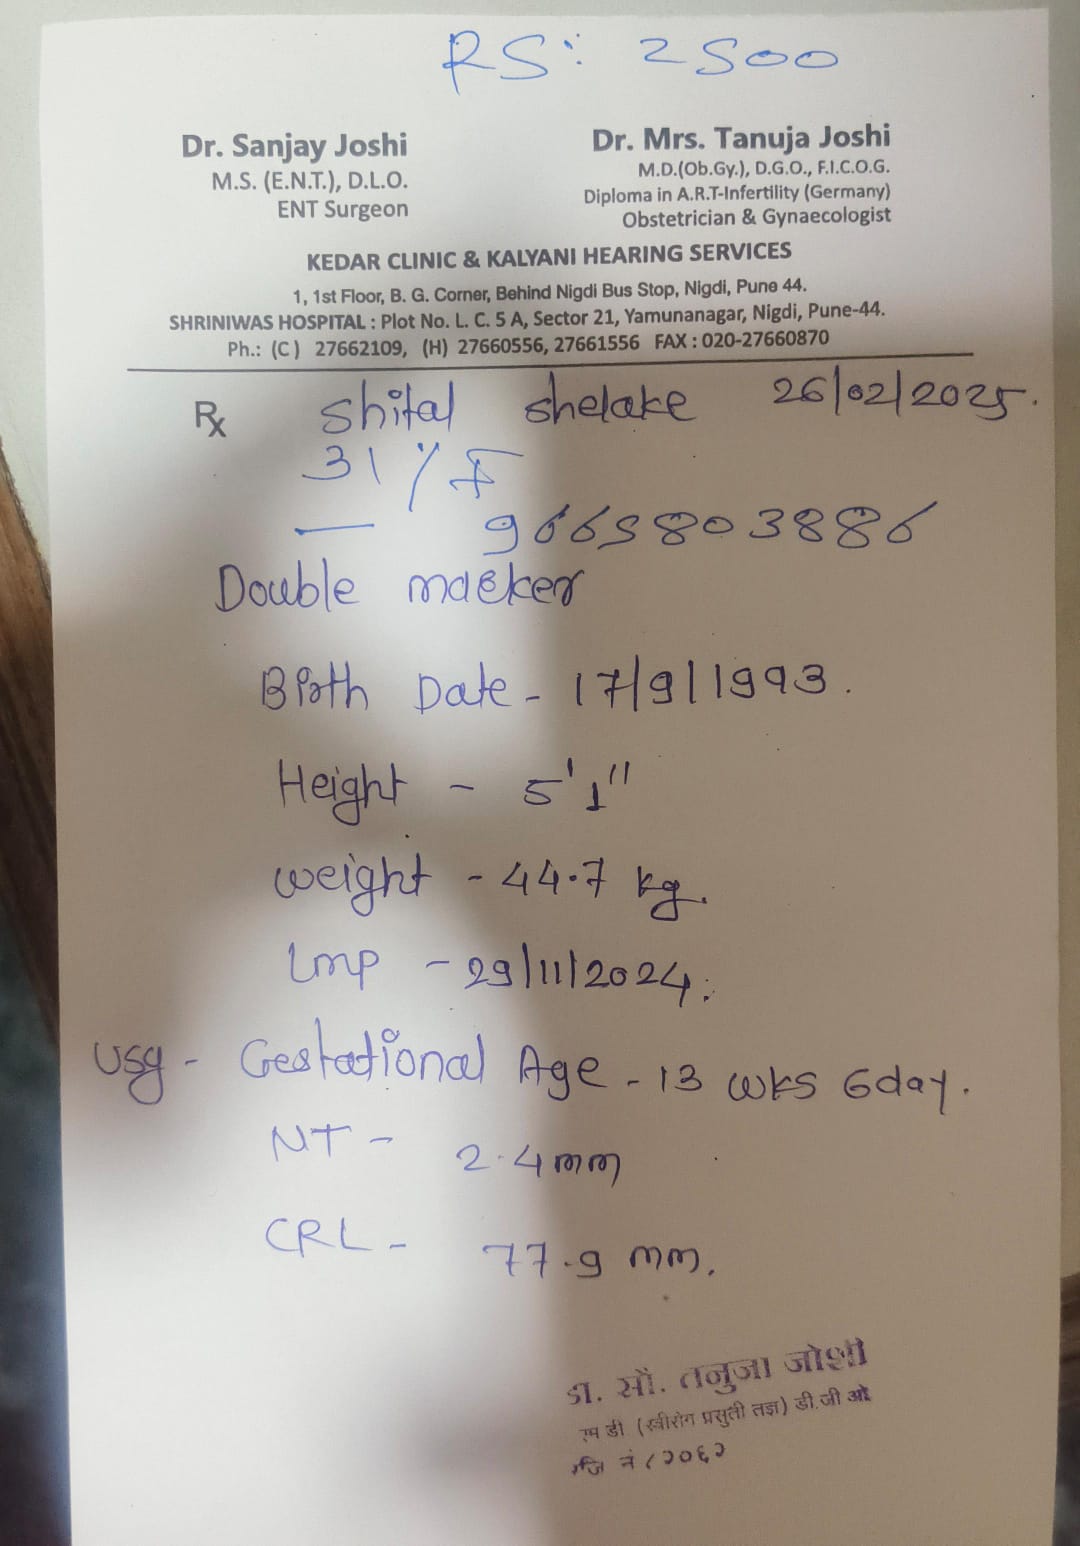 RS: 2500
Dr. Sanjay Joshi
M.S. (E.N.T.), D.L.O.
ENT Surgeon
Dr. Mrs. Tanuja Joshi
M.D.(Ob.Gy.), D.G.O., F.I.C.O.G.
Diploma in A.R.T-Infertility (Germany)
Obstetrician & Gynaecologist
KEDAR CLINIC & KALYANI HEARING SERVICES
1, 1st Floor, B. G. Corner, Behind Nigdi Bus Stop, Nigdi, Pune 44.
SHRINIWAS HOSPITAL : Plot No. L. C. 5 A, Sector 21, Yamunanagar, Nigdi, Pune-44.
Ph.: (C) 27662109, (H) 27660556, 27661556 FAX : 020-27660870
Rx shital shelake 26/02/2025.
31 / F
Double marker
Birth Date - 17/9/1993.
Height - 5'1"
weight - 44.7 kg.
Lmp - 29/11/2024.
USg - Gestational Age - 13 wks 6day.
NT - 2.4 mm
CRL - 77.9 mm.
डा. सौ. तनुजा जोशी
एम डी (स्त्रीरोग प्रसुती तज्ञ) डी.जी ओ